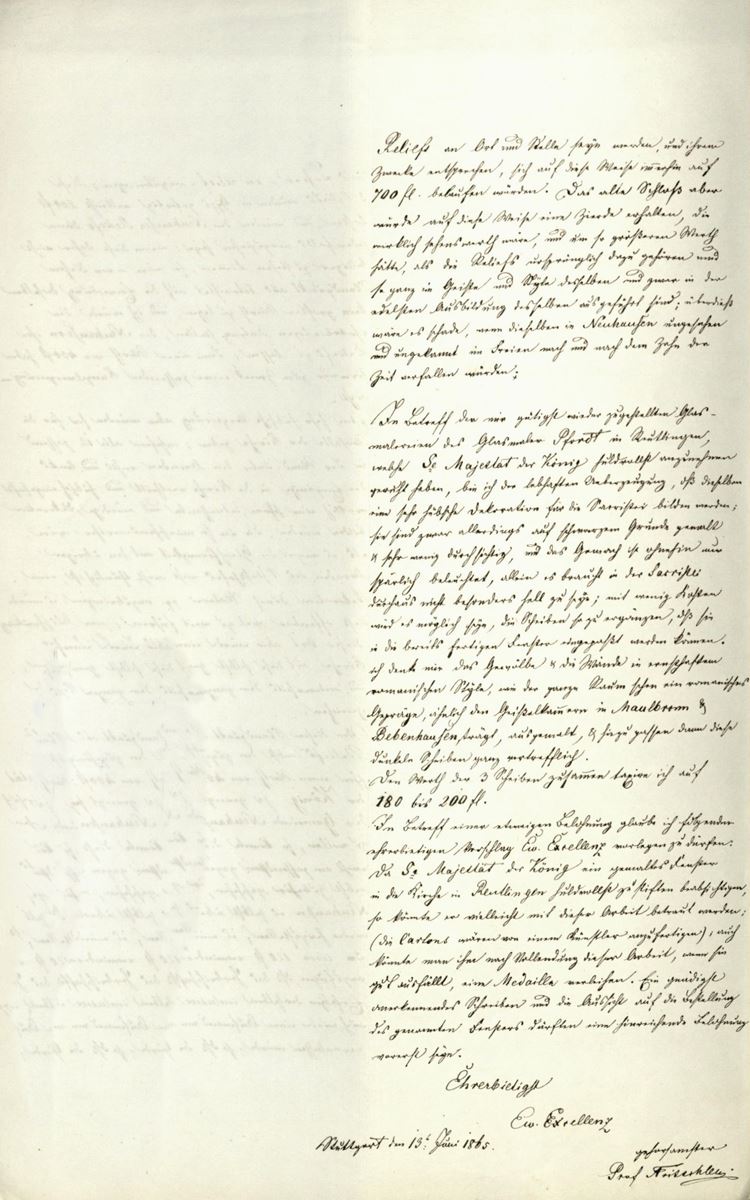 Reliefs an Ort und Stelle seyn werden, und ihrem
Zwecke entsprechen, sich auf diese Weise immerhin auf
700 fl. belaufen würden. Das alte Schloß aber
würde auf diese Weise eine Zierde erhalten, die
wirklich sehenswerth wäre, und um so größeren Werth
hätte, als die Reliefs ursprünglich dazu gehören und
so ganz im Geiste und Style desselben und zwar in der
edelsten Ausbildung desselben ausgeführt sind; überdieß
wäre es schade, wenn dieselben in Neuhausen ungesehen
und ungekannt im Freien nach und nach dem Zahn der
Zeit verfallen würden;
In Betreff der mir gütigst wieder zugestellten Glas-
malereien des Glasmaler Pfordt in Reutlingen,
welche Se Majestät der König huldvollst anzunehmen
geruht haben, bin ich der lebhaften Ueberzeugung, daß dieselben
eine sehr hübsche Dekoration für die Sacristei bilden werden;
sie sind zwar allerdings auf schwarzem Grunde gemalt
& sehr wenig durchsichtig, und das Gemach ist ohnehin nur
spärlich beleuchtet, allein es braucht in der Sacristei
durchaus nicht besonders hell zu seyn; mit wenig Kosten
wird es möglich seyn, die Scheiben so zu ergänzen, daß sie
in die bereits fertigen Fenster eingepaßt werden können.
ich denke mir das Gewölbe & die Wände in ernsthaftem
romanischen Style, wie der ganze Raum schon ein romanisches
Gepräge, ähnlich den Geißelkammern in Maulbronn &
Bebenhausen, trägt, ausgemalt, & hiezu passen dann diese
dunkeln Scheiben ganz vortrefflich.
Den Werth der 3 Scheiben zusammen taxire ich auf
180 bis 200 fl.
In Betreff einer etwaigen Belohnung glaube ich folgenden
ehrerbietigen Vorschlag Ew. Excellenz vorlegen zu dürfen.
Da Se Majestät der König ein gemaltes Fenster
in die Kirche in Reutlingen huldvollst zu stiften beabsichtigen,
so könnte er vielleicht mit dieser Arbeit betraut werden;
(die Cartons wären von einem Künstler anzufertigen); auch
könnte man ihm nach Vollendung dieser Arbeit, wenn sie
gut ausfällt, eine Medaille verleihen. Ein gnädigst
anerkennendes Schreiben und die Aussicht auf die Bestellung
des genannten Fensters dürften eine hinreichende Belohnung
vorerst seyn.
Ehrerbietigst
Ew. Excellenz
Stuttgart den 13t. Juni 1865.
gehorsamster
Prof